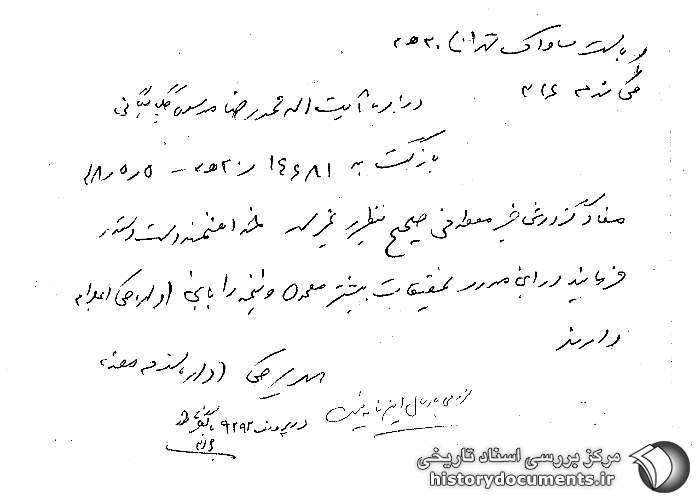 ریاست ساواک تهران ۲۰ ه
گیرنده ۳۱۶
درباره آیت اله محمد رضا موسوی گلپایگانی
بازگشت به ۱۴۶۸۱ /۲۰ ه
مفاد گزارش خبر صحیح بنظر نمیرسد لذا خواهشمند است دستور
فرمایند در این مورد تحقیقات بیشتر معمول و نتیجه را باین اداره کل اعلام
دارند
مدیر کل اداره سوم
در پرونده ۹۲۹۲ بایگانی شود
۳۱۶
مرکز بررسی اسناد تاریخی
historydocuments.ir